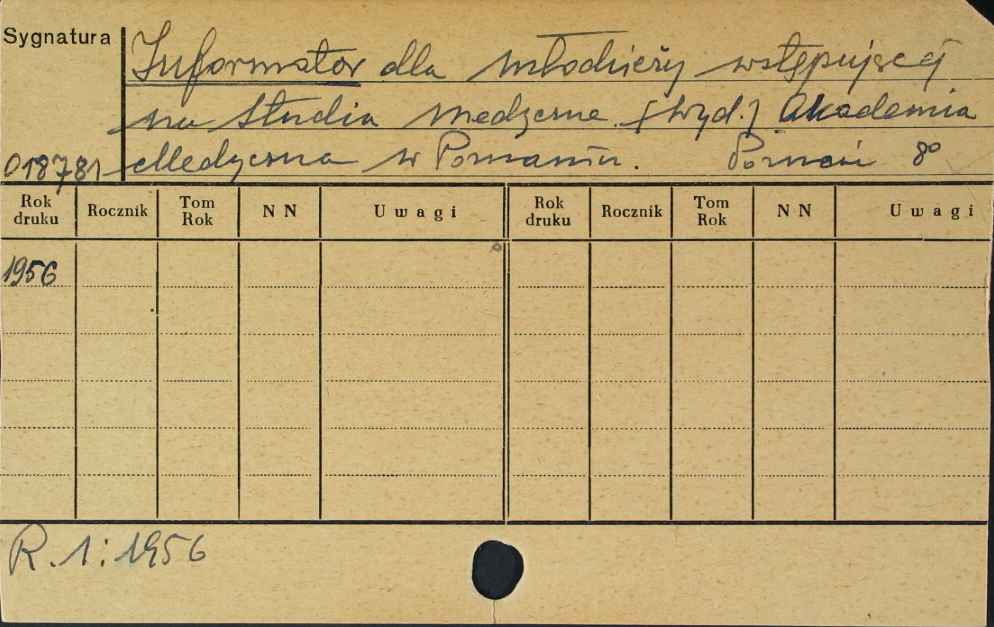 Sygnatura
Informator dla młodzieży wstępującej
na studia medyczne. [Wyd.] Akademia
018781 Medyczna w Poznaniu. Poznań 8°
Rok druku Rocznik Tom Rok N N Uwagi Rok druku Rocznik Tom Rok N N Uwagi
1956
R. 1: 1956